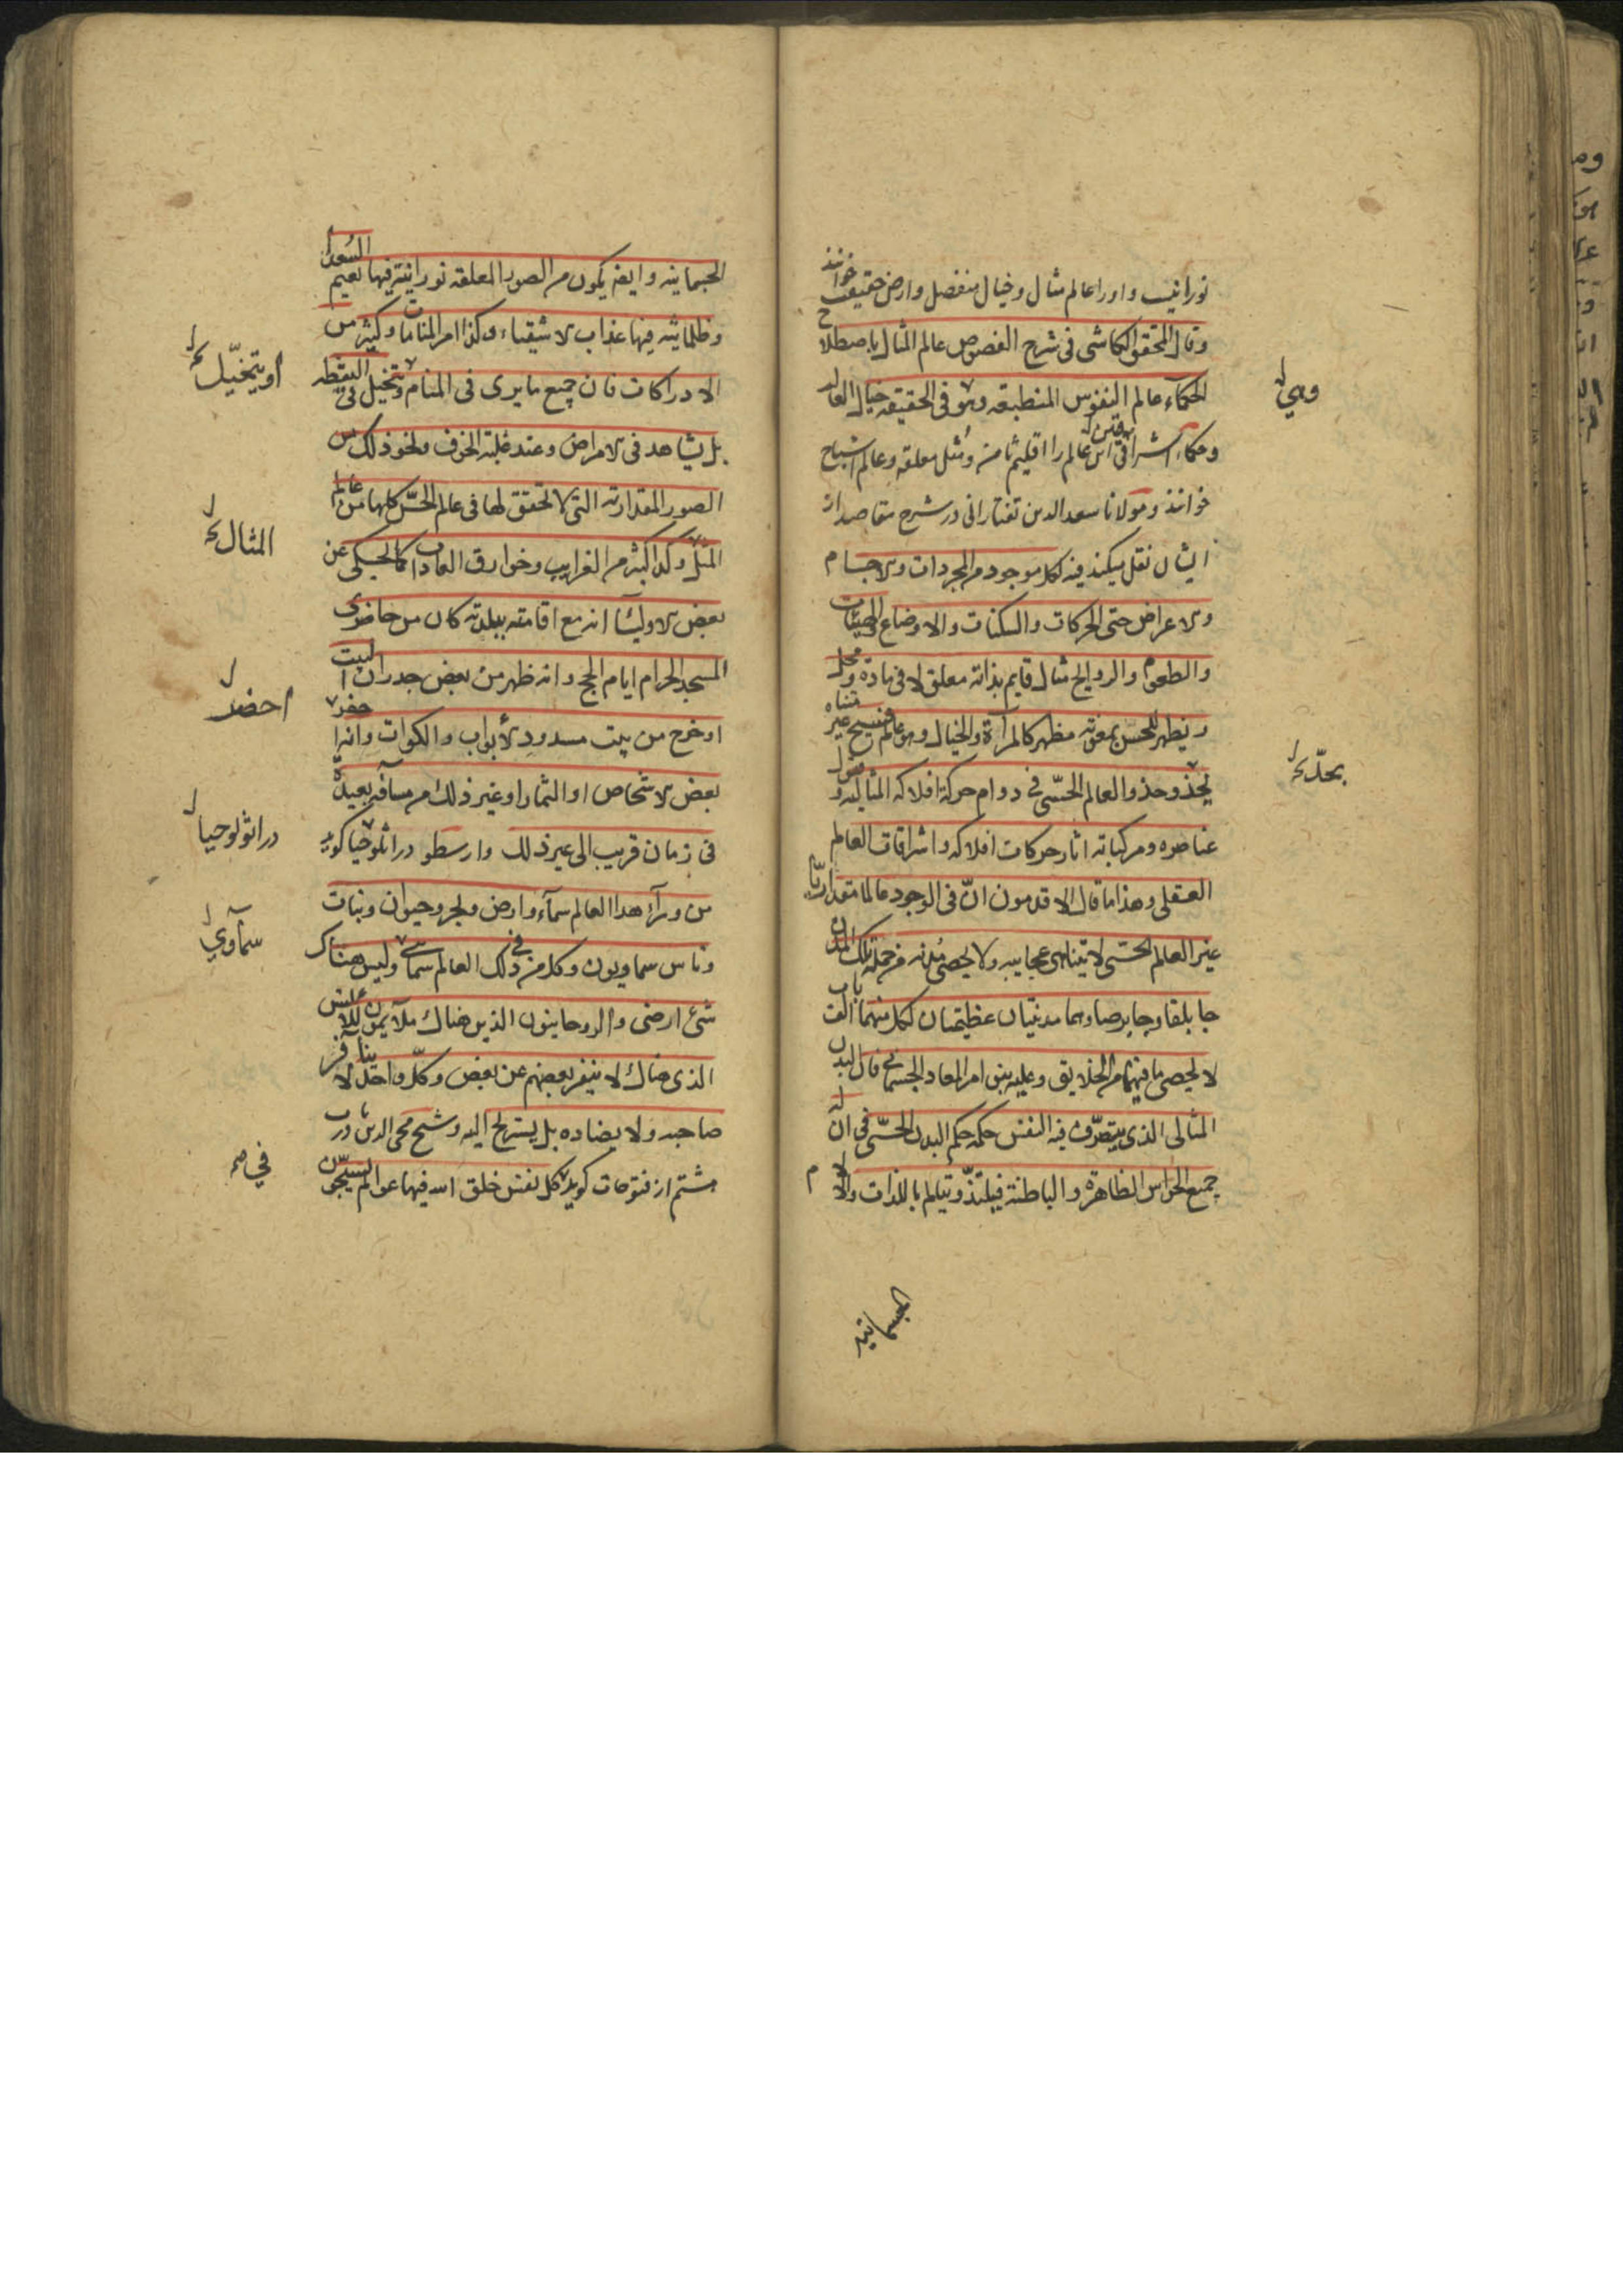 نورانیست و اورا عالم مثال و خیال منفصل و ارض حقیقت خوانند
وقال المحقق الکاشی فی شرح الفصوص عالم المثال باصطلاح
الحکمآء عالم النفوس المنطبعه وهو فی الحقیقه خیال العالم
وهي
وحکماء اشراقی این عالم را اقلیم ثامن و مُثُل معلقه وعالم اشباح
خوانند ومولانا سعد الدین تفتازانی در شرح مقاصد از
ایشان نقل میکند فیه لکل موجود من المجردات والاجسام
والاعراض حتی الحرکات والسکنات والاوضاع والهیئات
والطعوم والروایح مثال قایم بذاته معلق لا فی مادة ومحل
ویظهر للحسّ بمعونة مظهر کالمرآة والخیال وهو عالم فسیح غیر متناه
یحذو حذو العالم الحسّی فی دوام حرکة افلاکه المثالیه وقبول
عناصره ومرکباته اثار حرکات افلاکه واشراقات العالم
العقلی وهذا ما قال الاقدمون انّ فی الوجود عالما مقداریّا
غیر العالم الحسّی لا یتناهی عجایبه ولا یحصی مُدُنه من جملة تلک المدن
جابلقا وجابرصا وهما مدینتان عظیمتان لکل منهما الف باب
لا یحصی ما فیهما من الخلایق وعلیه بنی امر المعاد الجسمانی فان البدن
المثالی الذی یتصرّف فیه النفس حکمه حکم البدن الحسّی فی ان له
جمیع الحواس الظاهرة والباطنة فیلتذّ ویتالم باللذات والالام
الجسمانیه
الجسمانیه وایضا یکون من الصور المعلقه نورانیة فیها نعیم السُعدا
وظلمانیه فیها عذاب الاشقیاء وکذا امر المنامات وکثیر من
الادراکات فان جمیع ما یری فی المنام ویتخیل فی الیقظه
او یتخیّل
بل یشاهد فی الامراض وعند غلبة الخوف ونحو ذلک من
الصور المقداریة التی لا تحقق لها فی عالم الحسّ کلها من عالم
المثل وکذا کثیر من الغرایب وخوارق العادات کما یحکی عن
المثال
بعض الاولیآ انه مع اقامته ببلدته کان من حاضری
المسجد الحرام ایام الحج وانه ظهر من بعض جدران البیت
او خرج من بیت مسدود الابواب والکوات وانه احضر
احضر
بعض الاشخاص او الثمار او غیر ذلک من مسافة بعیدة
فی زمان قریب الی غیر ذلک وارسطو در اثلوجیا کوید
در اثولوجیا
من ورآء هذا العالم سمآء وارض وبحر وحیوان ونبات
وناس سماویون وکل من فی ذلک العالم سمآی ولیس هناک
سمآوي
شیء ارضی والروحانیون الذین هناک ملایمون للانس
الذی هناک لا ینفر بعضهم عن بعض وکلّ واحد لا ینافر
صاحبه ولا یضاده بل یستریح الیه وشیخ محی الدین در باب
هشتم از فتوحات کوید کل نفس خلق الله فیها عوالم یسبّحون
في